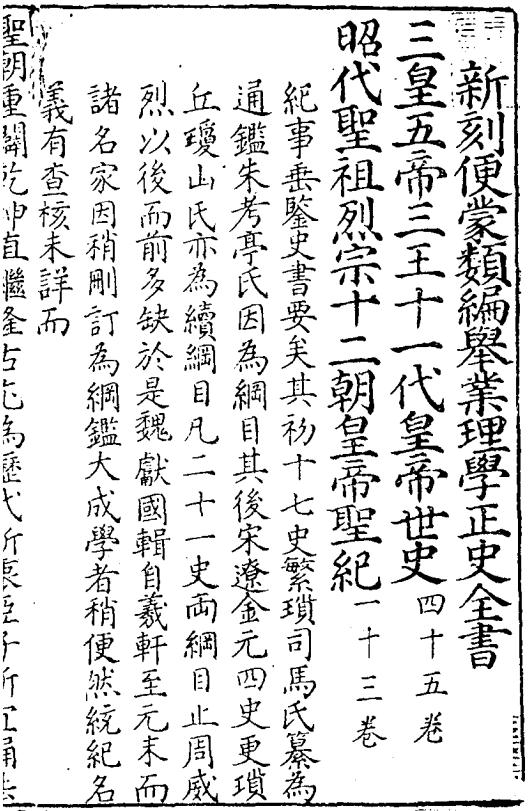 新刻便蒙類編舉業理學正史全書
三皇五帝三王十一代皇帝世史四十五卷
昭代聖祖烈宗十二朝皇帝聖紀一十三卷
紀事垂鑒史書要矣其初十七史繁瑣司馬氏纂為
通鑑朱考亭氏因為綱目其後宋遼金元四史更瑣
丘瓊山氏亦為續綱目凡二十一史両綱目止周威
烈以後而前多缺於是魏獻國輯自羲軒至元末而
諸名家因稍刪訂為綱鑑大成學者稍便然統紀名
義有查核未詳而
聖朝重闢乾坤直繼隆古尤為歷代所衷臣子所宜誦法